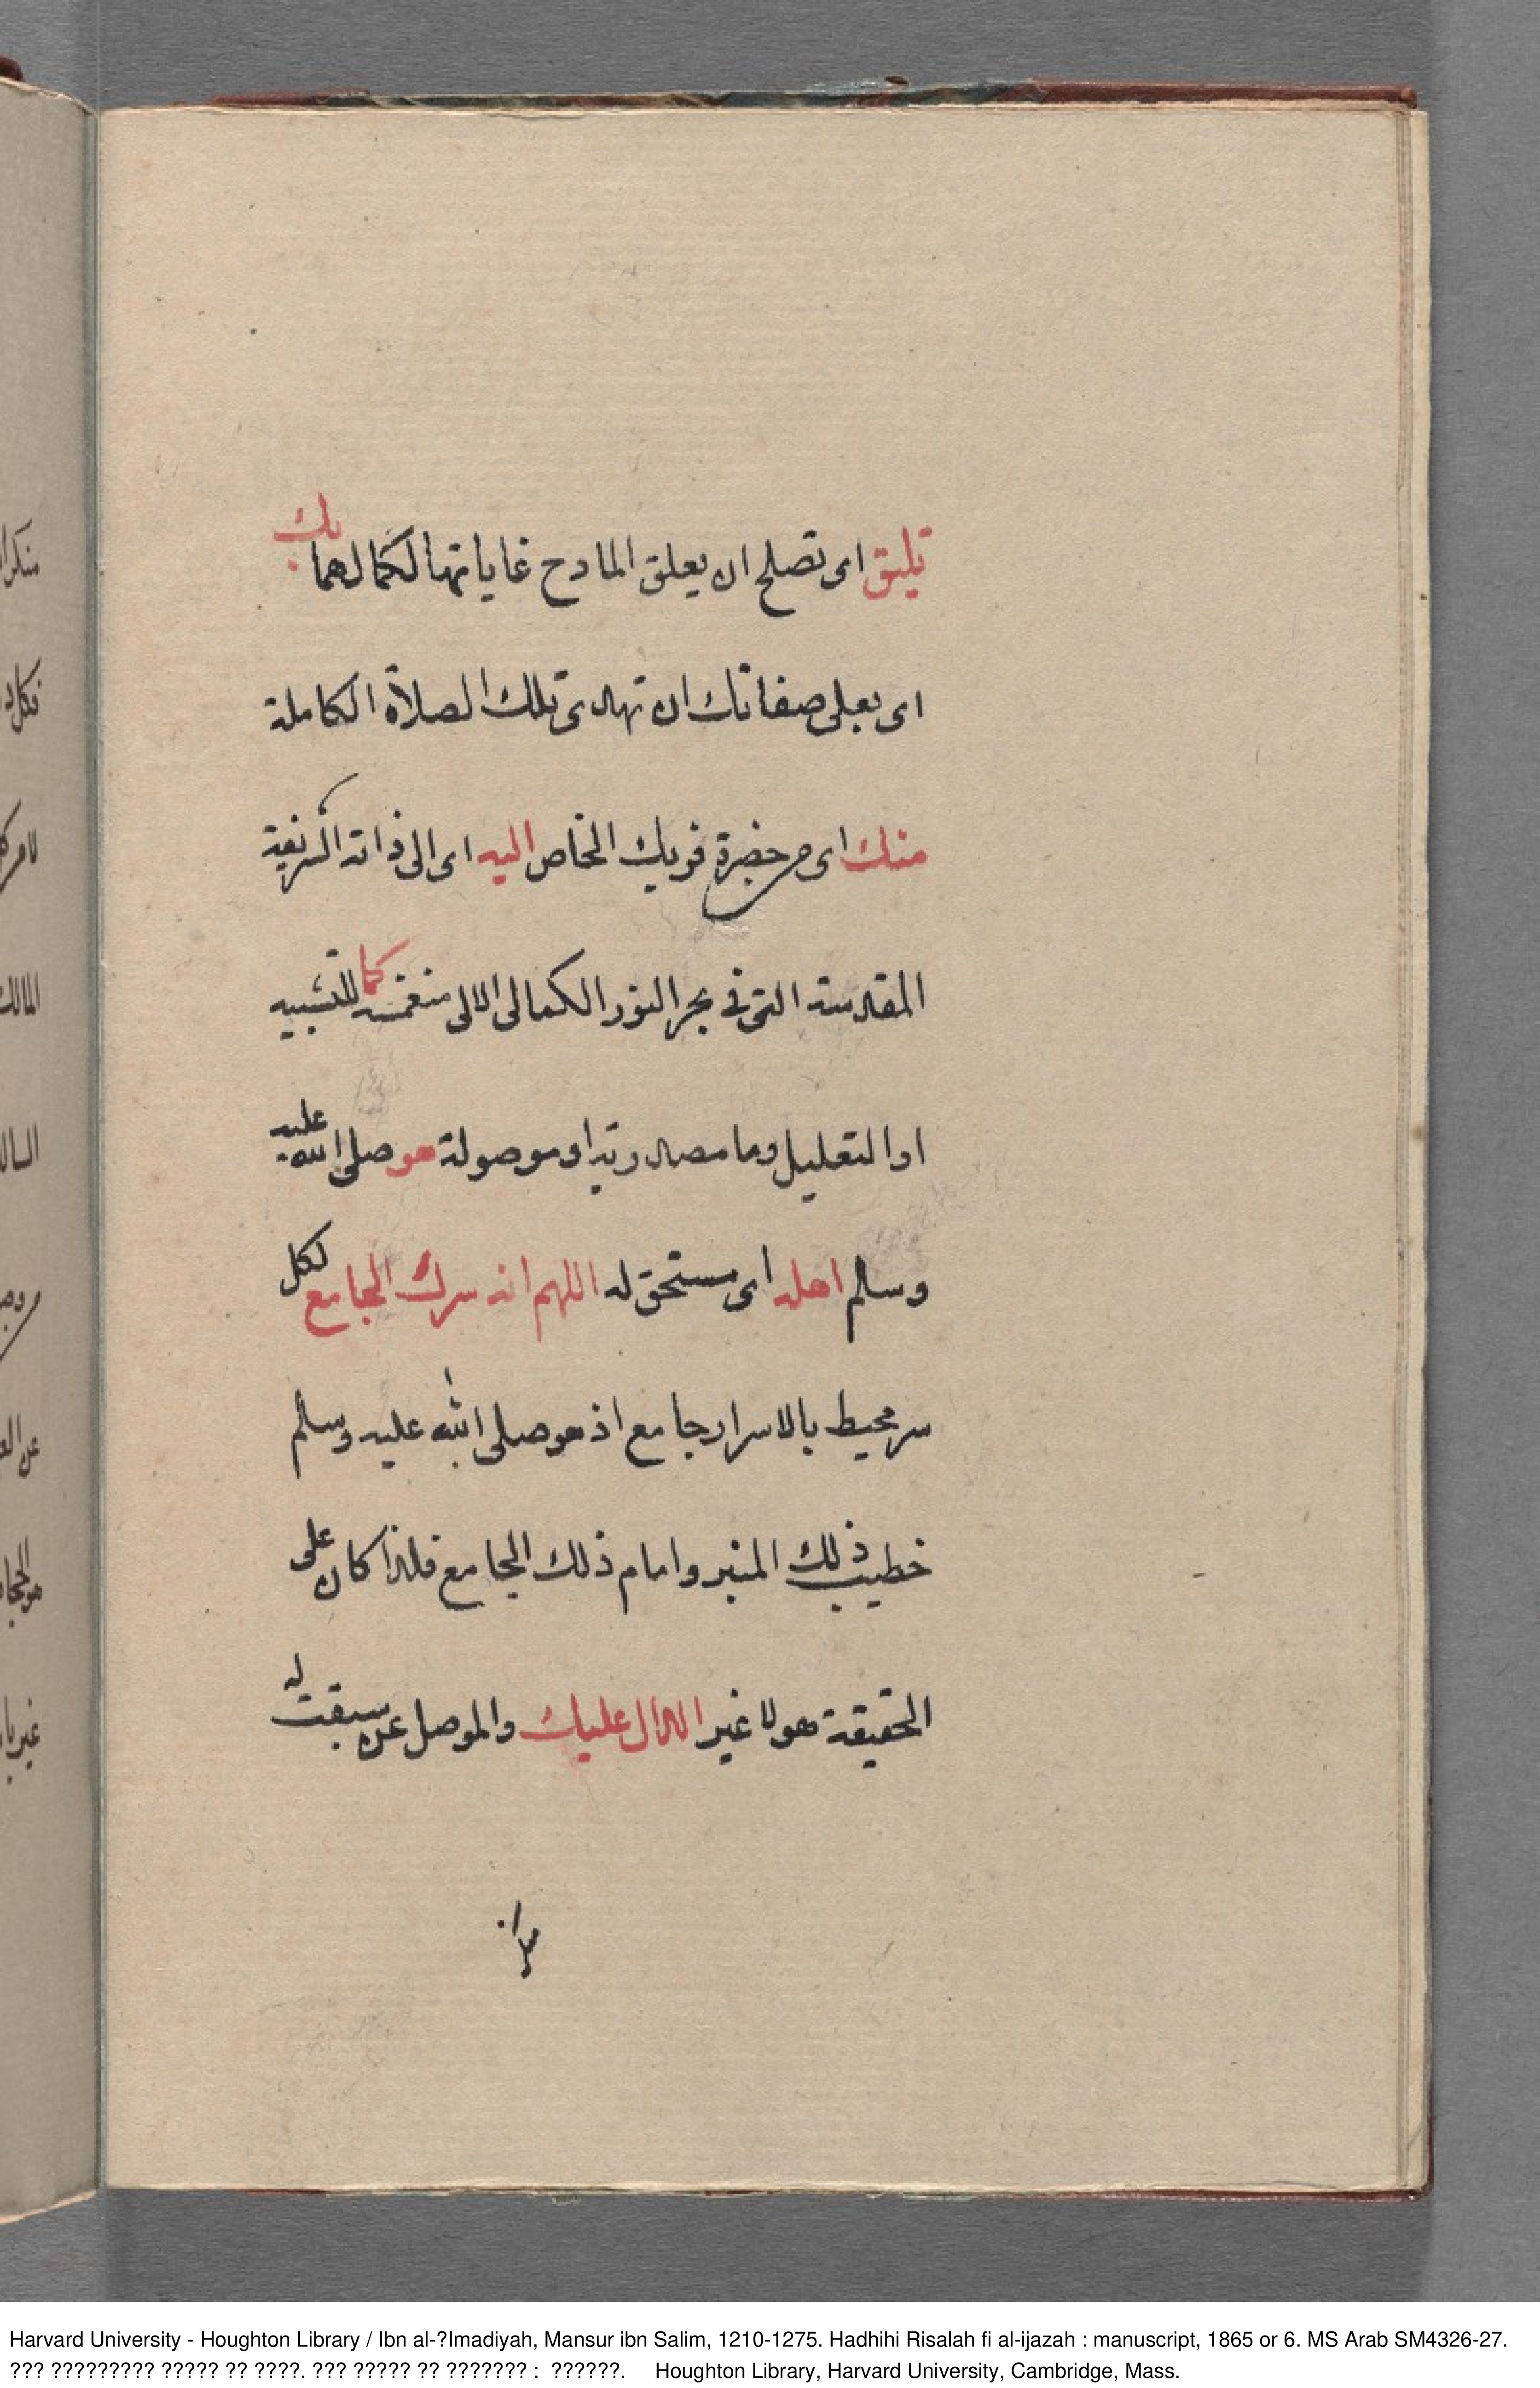 تليق اى تصلح ان يعلق المادح غاياتها لكمالهما بك
اى بعلى صفاتك ان تهدى تلك الصلاة الكاملة
منك اى من حضرة قربك الخاص اليه اى الى ذاته الشريفة
المقدسة التى فى بحر النور الكمالى الالى منغمسه كما للتشبيه
او التعليل وما مصدرية او موصولة هو صلى الله عليه
وسلم اهله اى مستحق له اللهم انه سرك الجامع لكل
سر محيط بالاسرار جامع اذ هو صلى الله عليه وسلم
خطيب ذلك المنبر وامام ذلك الجامع فلذا كان على
الحقيقة هو لا غير الدال عليك والموصل عن سبقت له
Harvard University - Houghton Library / Ibn al-?Imadiyah, Mansur ibn Salim, 1210-1275. Hadhihi Risalah fi al-ijazah : manuscript, 1865 or 6. MS Arab SM4326-27.
??? ????????? ????? ?? ????. ??? ????? ?? ??????? : ??????. Houghton Library, Harvard University, Cambridge, Mass.